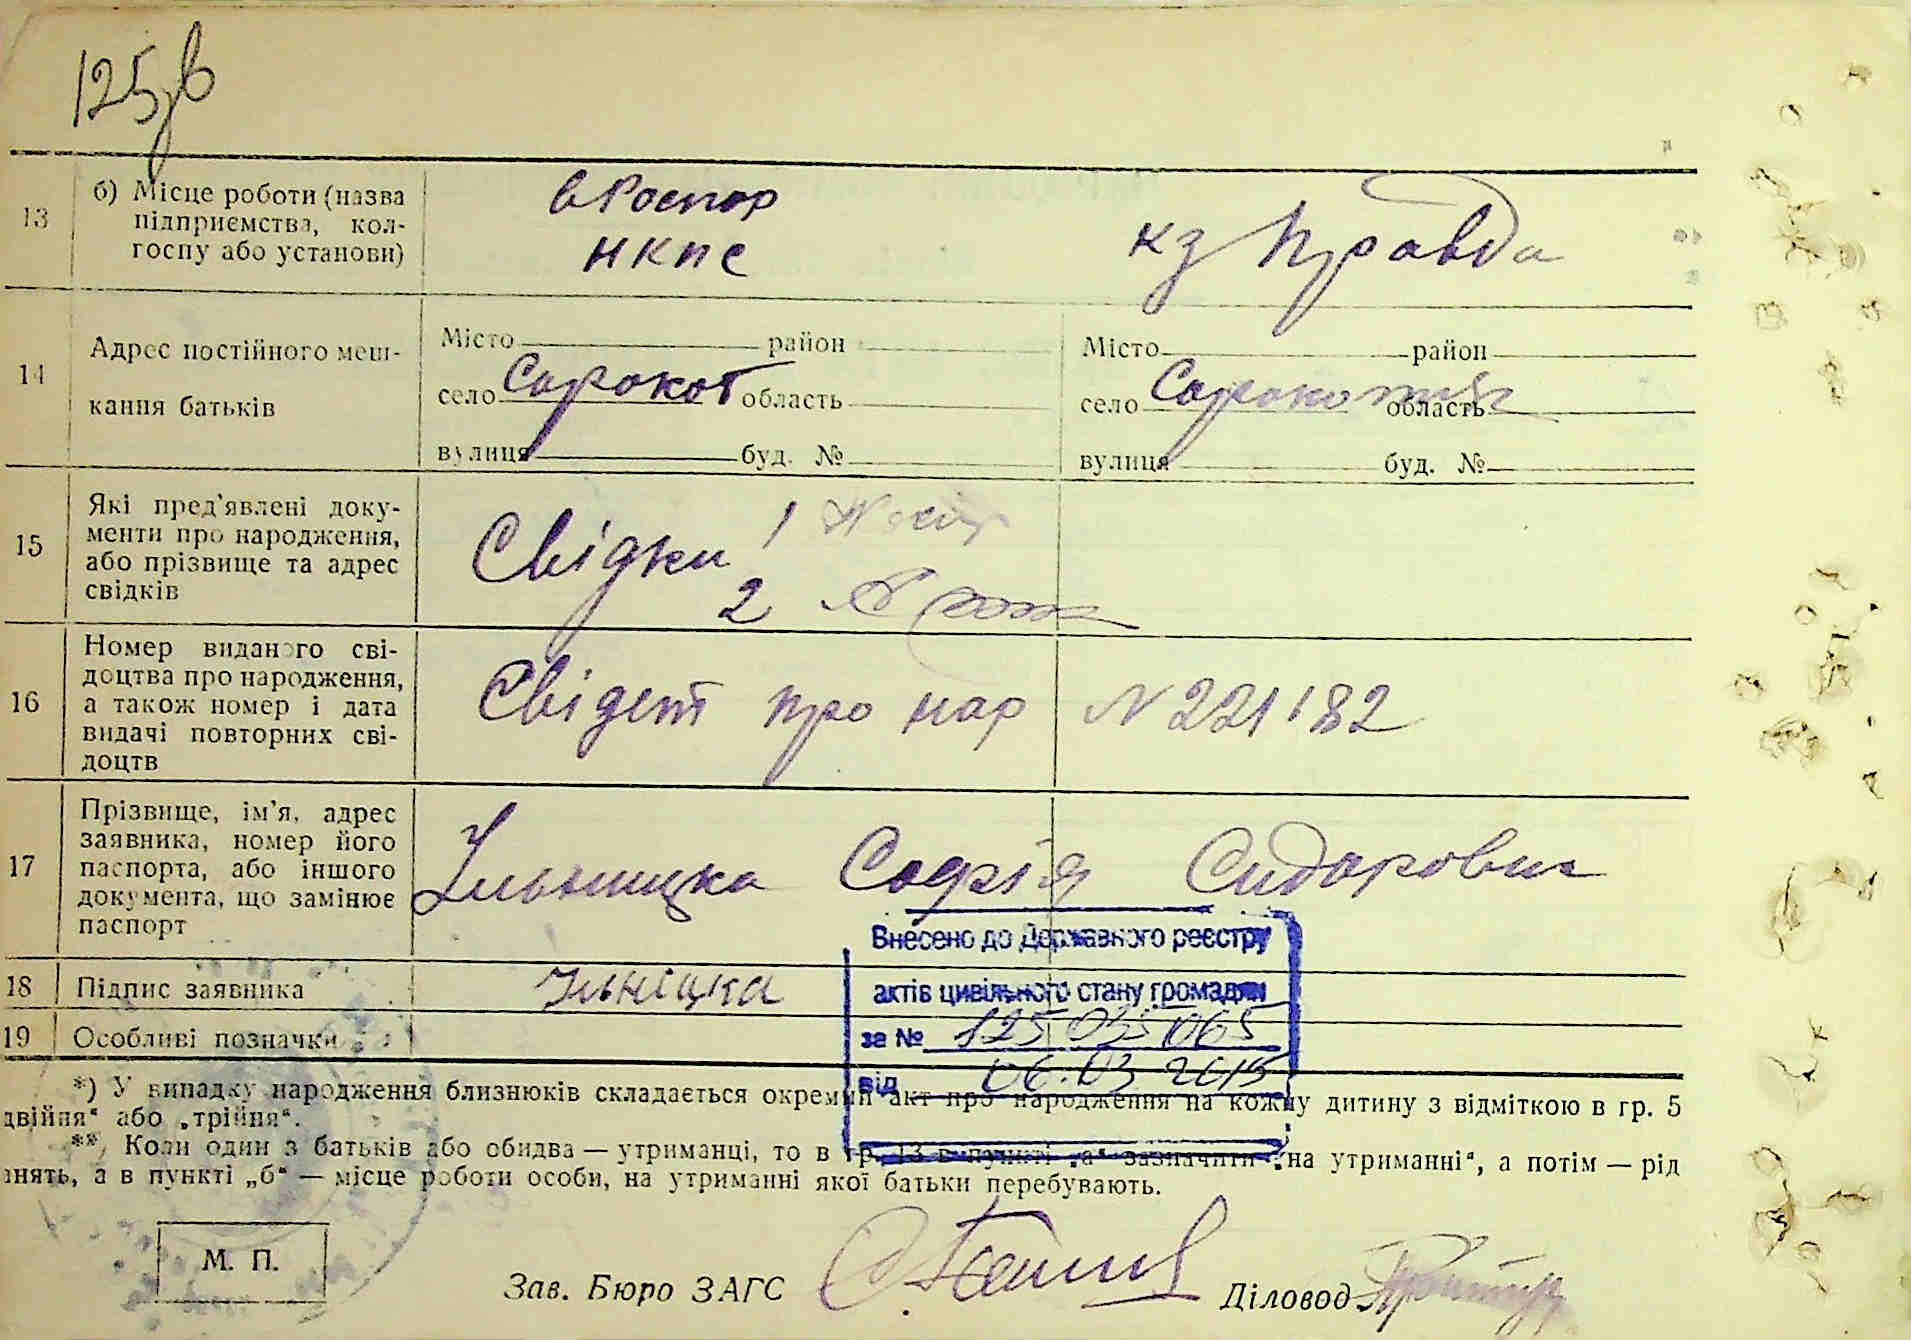 125
13
б) Місце роботи (назва підприємства, колгоспу або установи)
НКПС
кз Правда
14
Адрес постійного мешкання батьків
Місто район
село Сорокот область
вулиця буд. №
Місто район
село Сорокотяг область
вулиця буд. №
15
Які пред'явлені документи про народження, або прізвище та адрес свідків
Свідки 1
2
16
Номер виданого свідоцтва про народження, а також номер і дата видачі повторних свідоцтв
Свідет про нар N 221182
17
Прізвище, ім'я, адрес заявника, номер його паспорта, або іншого документа, що замінює паспорт
Ільницка Софія Сидоровна
Внесено до Державного реєстру
актів цивільного стану громадян
за № 125 035 065
від 06.03 2015
18
Підпис заявника
Ільніцка
19
Особливі позначки
*) У випадку народження близнюків складається окремий акт про народження на кожну дитину з відміткою в гр. 5
двійня“ або „трійня“.
**) Коли один з батьків або обидва — утриманці, то в гр. 13 в пункті „а“ зазначити „на утриманні“, а потім — рід
знять, а в пункті „б“ — місце роботи особи, на утриманні якої батьки перебувають.
М. П.
Зав. Бюро ЗАГС
Діловод